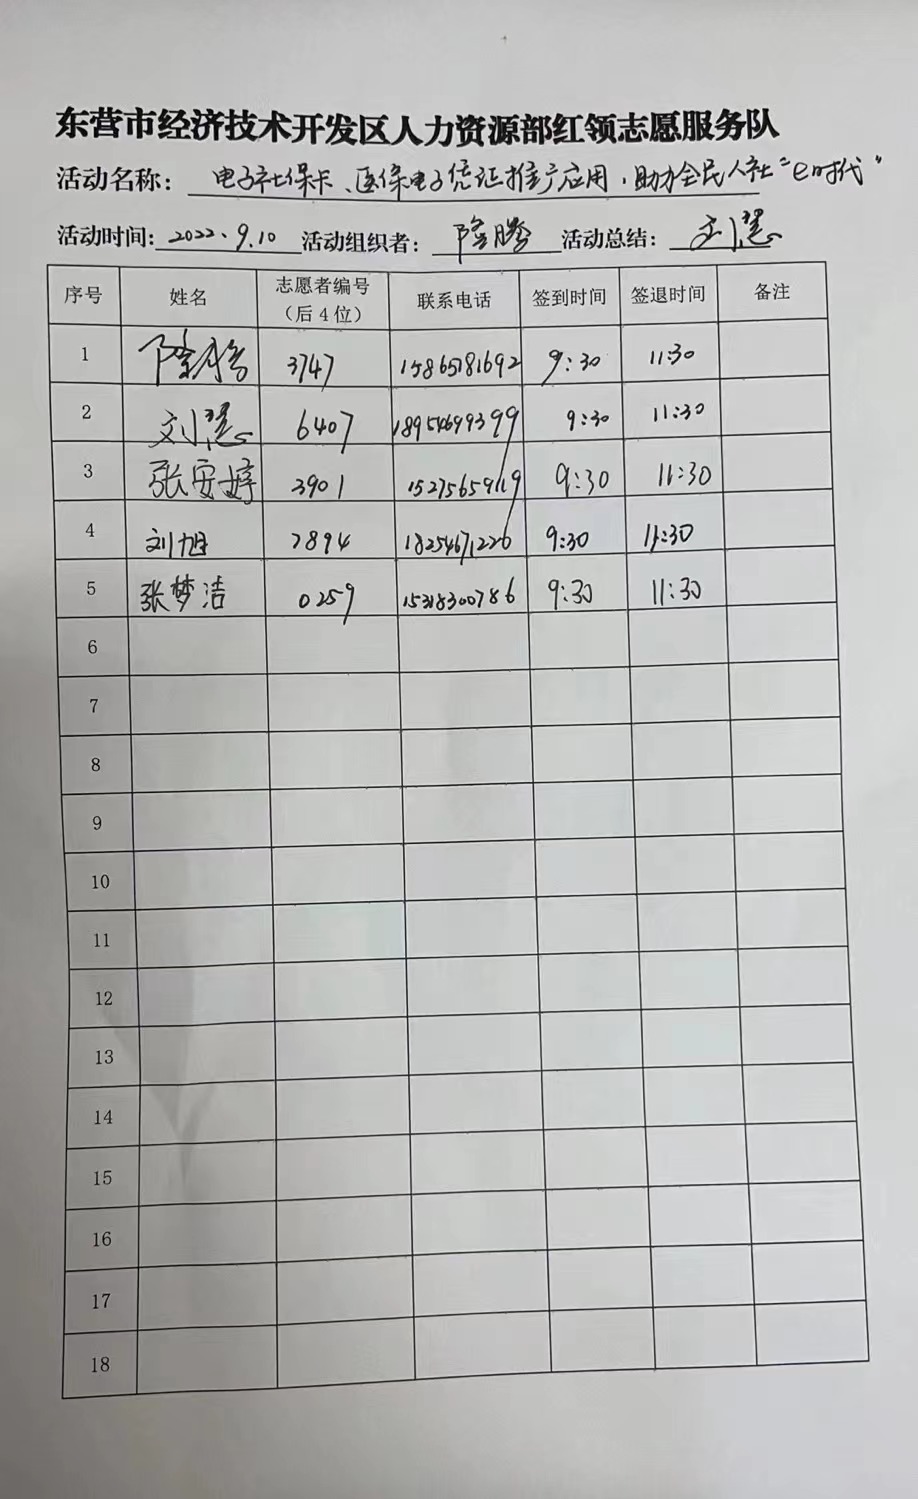 东营市经济技术开发区人力资源部红领志愿服务队
活动名称：电子社保卡、医保电子凭证推广应用，助力全民人社“e时代”
活动时间：2022.9.10 活动组织者：隆腾 活动总结：刘慧
序号 姓名 志愿者编号（后4位） 联系电话 签到时间 签退时间 备注
1 隆腾 3747 15865781692 9:30 11:30
2 刘慧 6407 18954699399 9:30 11:30
3 张安婷 3901 15275659119 9:30 11:30
4 刘旭 7894 18254671226 9:30 11:30
5 张梦洁 0259 15318300786 9:30 11:30
6
7
8
9
10
11
12
13
14
15
16
17
18